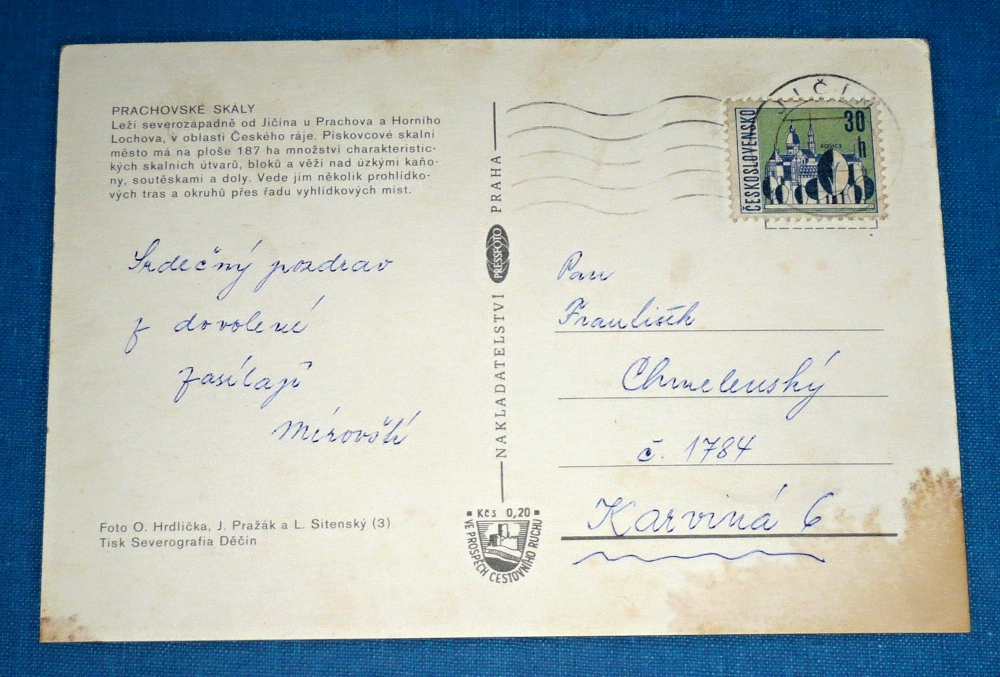 PRACHOVSKÉ SKÁLY
Leží severozápadně od Jičína u Prachova a Horního
Lochova, v oblasti Českého ráje. Pískovcové skalní
město má na ploše 187 ha množství charakteristic-
kých skalních útvarů, bloků a věží nad úzkými kaňo-
ny, soutěskami a doly. Vede jím několik prohlídko-
vých tras a okruhů přes řadu vyhlídkových míst.
Srdečný pozdrav
z dovolené
zasílají
Mírovští
Foto O. Hrdlička, J. Pražák a L. Sitenský (3)
Tisk Severografia Děčín
NAKLADATELSTVÍ PRESSFOTO PRAHA
Kčs 0,20
VE PROSPĚCH CESTOVNÍHO RUCHU
JIČÍN
ČESKOSLOVENSKO
30 h
KOŠICE
Pan
František
Chmelenský
č. 1784
Karviná 6